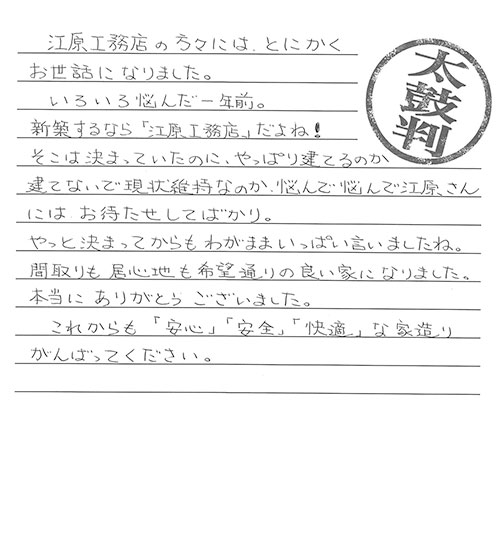 江原工務店の方々には、とにかく
お世話になりました。
いろいろ悩んだ一年前。
新築するなら「江原工務店」だよね!
そこは決まっていたのに、やっぱり建てるのか
建てないで現状維持なのか、悩んで悩んで江原さん
には、お待たせしてばかり。
やっと決まってからも わがままいっぱい言いましたね。
間取りも居心地も希望通りの良い家になりました。
本当に ありがとう ございました。
これからも 「安心」「安全」「快適」な家造り
がんばってください。
太鼓判